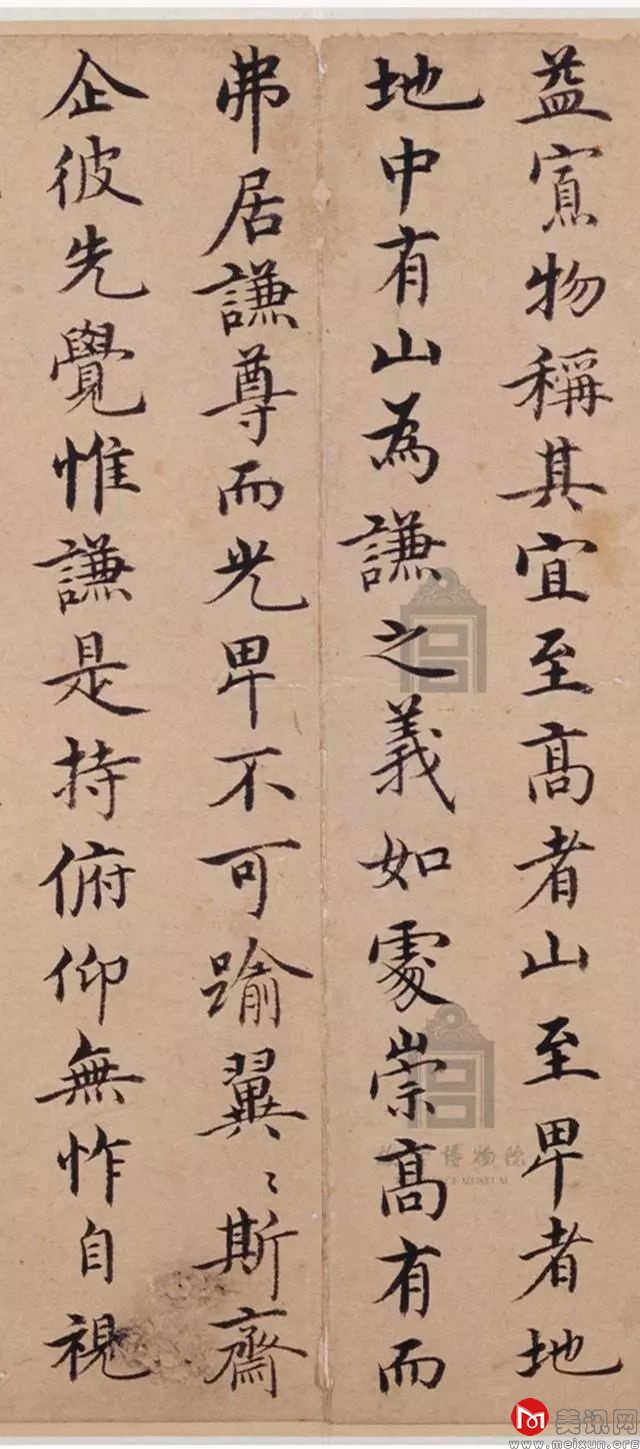 益寡物稱其宜至高者山至卑者地
地中有山為謙之義如處崇高有而
弗居謙尊而光卑不可踰翼〻斯齋
企彼先覺惟謙是持俯仰無怍自視
博物院
CE MUSEUM
美讯网
www.meixun.org